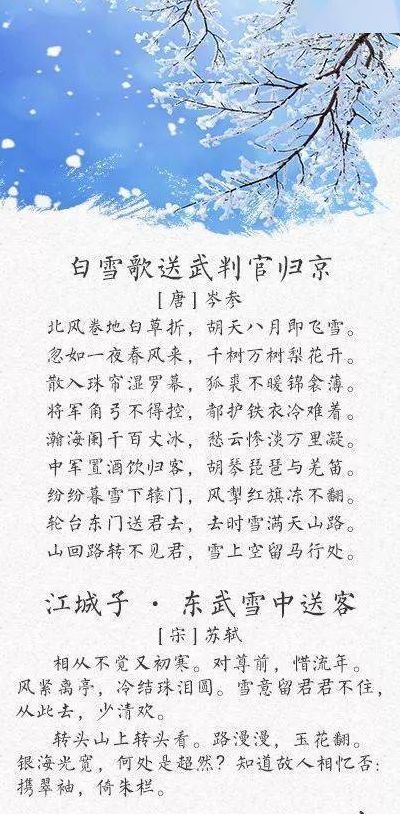 白雪歌送武判官归京
[唐] 岑参
北风卷地白草折，胡天八月即飞雪。
忽如一夜春风来，千树万树梨花开。
散入珠帘湿罗幕，狐裘不暖锦衾薄。
将军角弓不得控，都护铁衣冷难着。
瀚海阑干百丈冰，愁云惨淡万里凝。
中军置酒饮归客，胡琴琵琶与羌笛。
纷纷暮雪下辕门，风掣红旗冻不翻。
轮台东门送君去，去时雪满天山路。
山回路转不见君，雪上空留马行处。
江城子·东武雪中送客
[宋] 苏轼
相从不觉又初寒。对尊前，惜流年。
风紧离亭，冷结珠泪圆。雪意留君君不住，
从此去，少清欢。
转头山上转头看。路漫漫，玉花翻。
银海光宽，何处是超然？知道故人相忆否：
携翠袖，倚朱栏。